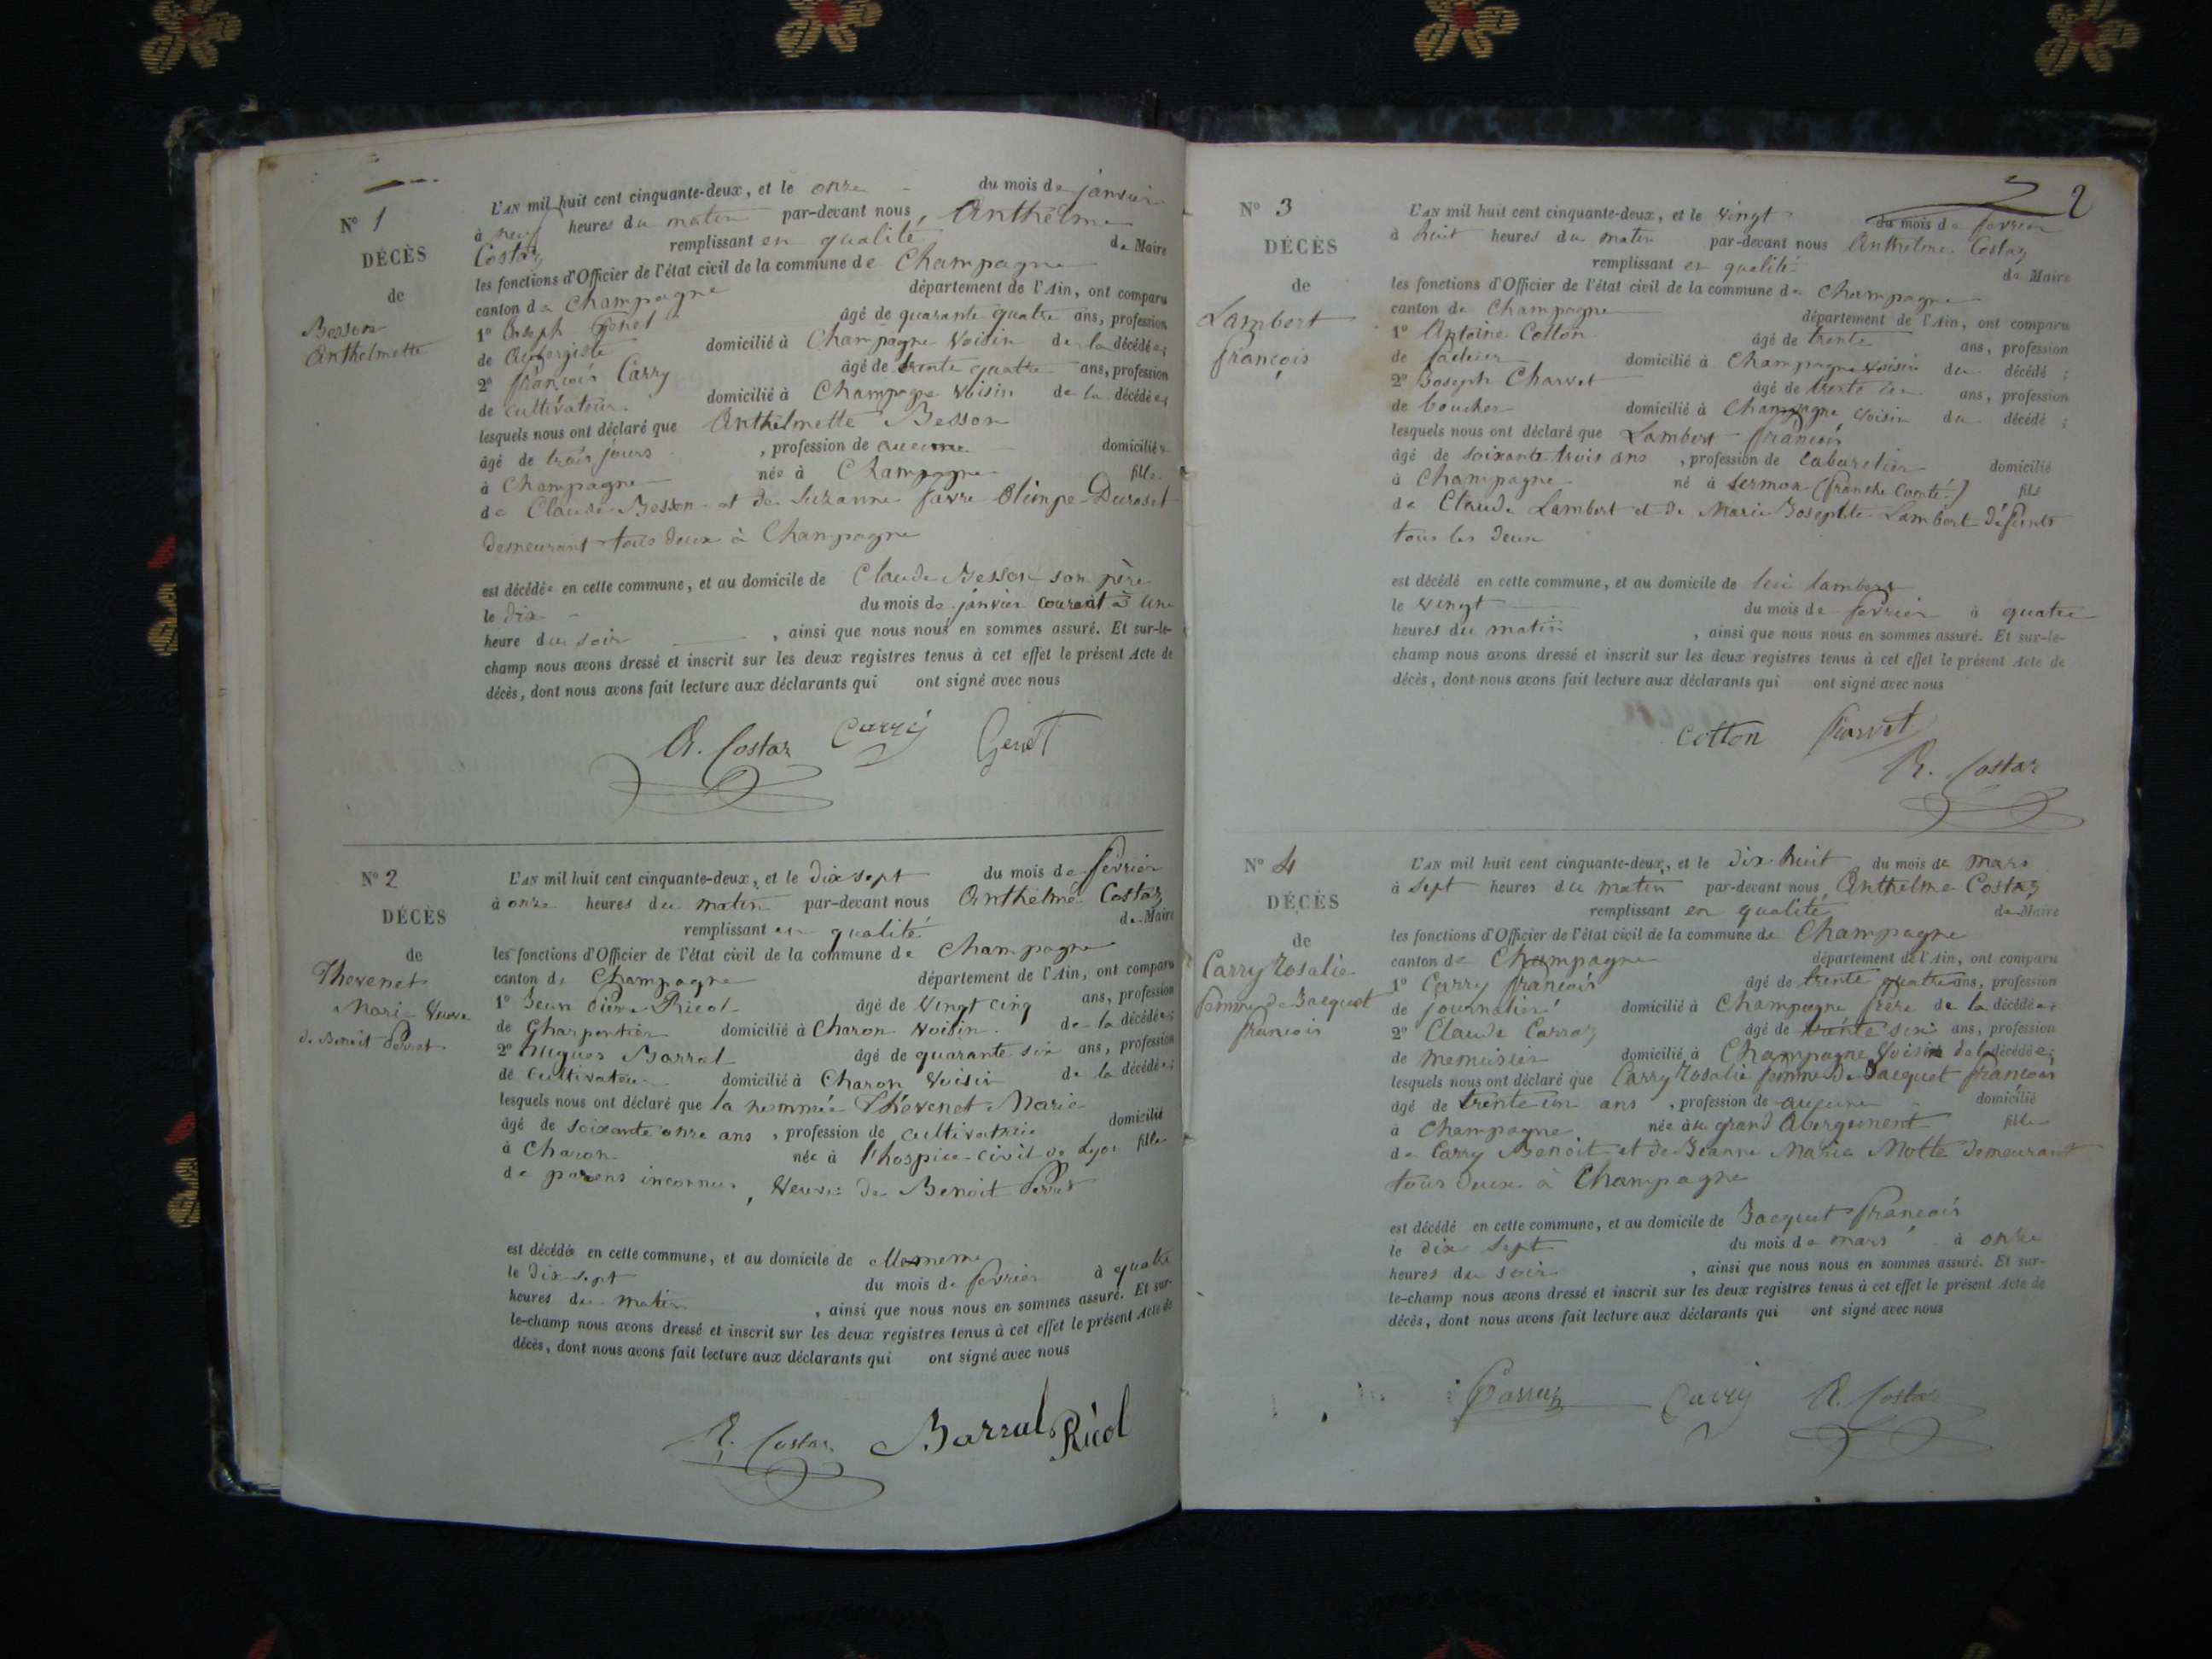 N° 1
DÉCÈS
de
Besson
Anthelmette
L'AN mil huit cent cinquante-deux, et le onze du mois de janvier
à neuf heures du matin par-devant nous, Anthelme
Costaz remplissant en qualité de Maire
les fonctions d'Officier de l'état civil de la commune de Champagne
canton de Champagne département de l'Ain, ont comparu
1° Joseph Genet âgé de quarante quatre ans, profession
de Aubergiste domicilié à Champagne voisin de la décédée;
2° françois Carry âgé de trente quatre ans, profession
de cultivateur domicilié à Champagne voisin de la décédée;
lesquels nous ont déclaré que Anthelmette Besson
âgé de trois jours, profession de aucune domiciliée
à Champagne née à Champagne fille
de Claude Besson et de Suzanne favre Olimpe Duroset
demeurant tous deux à Champagne
est décédée en cette commune, et au domicile de Claude Besson son père
le dix du mois de janvier courant à une
heure du soir, ainsi que nous nous en sommes assuré. Et sur-le-
champ nous avons dressé et inscrit sur les deux registres tenus à cet effet le présent Acte de
décès, dont nous avons fait lecture aux déclarants qui ont signé avec nous
A. Costaz Carry Genet
N° 2
DÉCÈS
de
Thevenet
Marie Veuve
de Benoit Perret
L'AN mil huit cent cinquante-deux, et le dix sept du mois de février
à onze heures du matin par-devant nous Anthelme Costaz
remplissant en qualité de Maire
les fonctions d'Officier de l'état civil de la commune de Champagne
canton de Champagne département de l'Ain, ont comparu
1° Jean Pierre Ricol âgé de vingt cinq ans, profession
de Charpentier domicilié à Charon voisin de la décédée;
2° hugues Barral âgé de quarante six ans, profession
de cultivateur domicilié à Charon voisin de la décédée;
lesquels nous ont déclaré que la nommée Thévenet Marie
âgé de soixante onze ans, profession de cultivatrice domicilié
à Charon née à l'hospice civil de Lyon fille
de parens inconnus, veuve de Benoit Perret
est décédée en cette commune, et au domicile de elle meme
le dix sept du mois de fevrier à quatre
heures du matin, ainsi que nous nous en sommes assuré. Et sur-
le-champ nous avons dressé et inscrit sur les deux registres tenus à cet effet le présent Acte de
décès, dont nous avons fait lecture aux déclarants qui ont signé avec nous
A. Costaz Barral Ricol
2
N° 3
DÉCÈS
de
Lambert
françois
L'AN mil huit cent cinquante-deux, et le vingt du mois de fevrier
à huit heures du matin par-devant nous Anthelme Costaz
remplissant en qualité de Maire
les fonctions d'Officier de l'état civil de la commune de Champagne
canton de Champagne département de l'Ain, ont comparu
1° Antoine Cotton âgé de trente ans, profession
de domicilié à Champagne voisin du décédé;
2° Joseph Charvet âgé de trente un ans, profession
de boucher domicilié à Champagne voisin du décédé;
lesquels nous ont déclaré que Lambert françois
âgé de soixante trois ans, profession de cabaretier domicilié
à Champagne né à Sermon (franche Comté) fils
de Claude Lambert et de Marie Josephte Lambert défunts
tous les deux
est décédé en cette commune, et au domicile de lui lambert
le vingt du mois de fevrier à quatre
heures du matin, ainsi que nous nous en sommes assuré. Et sur-le-
champ nous avons dressé et inscrit sur les deux registres tenus à cet effet le présent Acte de
décès, dont nous avons fait lecture aux déclarants qui ont signé avec nous
Cotton Charvet
A. Costaz
N° 4
DÉCÈS
de
Carry Rosalie
femme de Jacquet
françois
L'AN mil huit cent cinquante-deux, et le dix huit du mois de mars
à sept heures du matin par-devant nous, Anthelme Costaz
remplissant en qualité de Maire
les fonctions d'Officier de l'état civil de la commune de Champagne
canton de Champagne département de l'Ain, ont comparu
1° Carry françois âgé de trente quatre ans, profession
de journalier domicilié à Champagne frère de la décédée;
2° Claude Carraz âgé de trente six ans, profession
de menuisier domicilié à Champagne voisin de la décédée;
lesquels nous ont déclaré que Carry Rosalie femme de Jacquet françois
âgé de trente un ans, profession de aucune domicilié
à Champagne née au grand Abergement fille
de Carry Benoit et de Jeanne Marie Motte demeurant
tous deux à Champagne
est décédé en cette commune, et au domicile de Jacquet françois
le dix sept du mois de mars à onze
heures du soir, ainsi que nous nous en sommes assuré. Et sur-
le-champ nous avons dressé et inscrit sur les deux registres tenus à cet effet le présent Acte de
décès, dont nous avons fait lecture aux déclarants qui ont signé avec nous
Carraz Carry A. Costaz